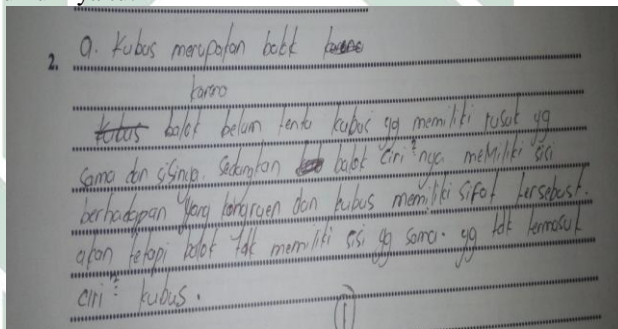 2. a. Kubus merupakan balok
karena
balok belum tentu kubus yg memiliki rusuk yg
sama dan sisinya. Sedangkan balok ciri²nya memiliki sisi
berhadapan yang kongruen dan kubus memiliki sifat tersebut.
akan tetapi balok tdk memiliki sisi yg sama. yg tdk termasuk
ciri² kubus.